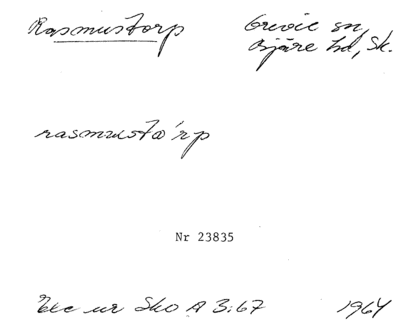 Rasmustorp
Grevie sn,
Bjäre hd, Sk.
rasmustå´rp
Nr 23835
Exc ur Sko A 3:67 1964